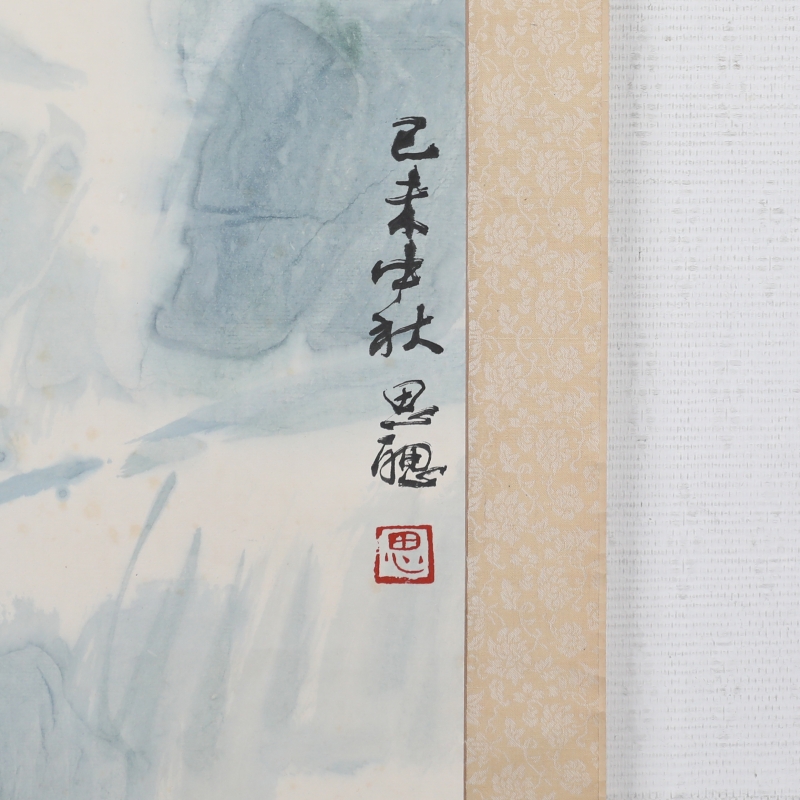 己未中秋思聰
思